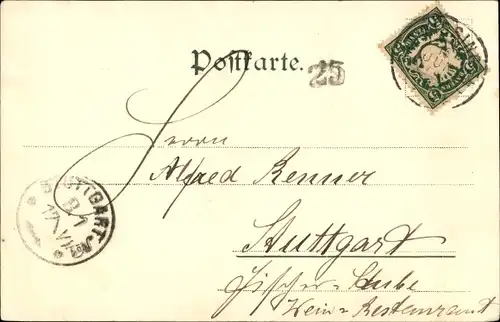 Postkarte.
25
Herrn
Alfred Renner
Stuttgart
Fischer-Stube
Wein-Restaurant
STUTTGART. No 1